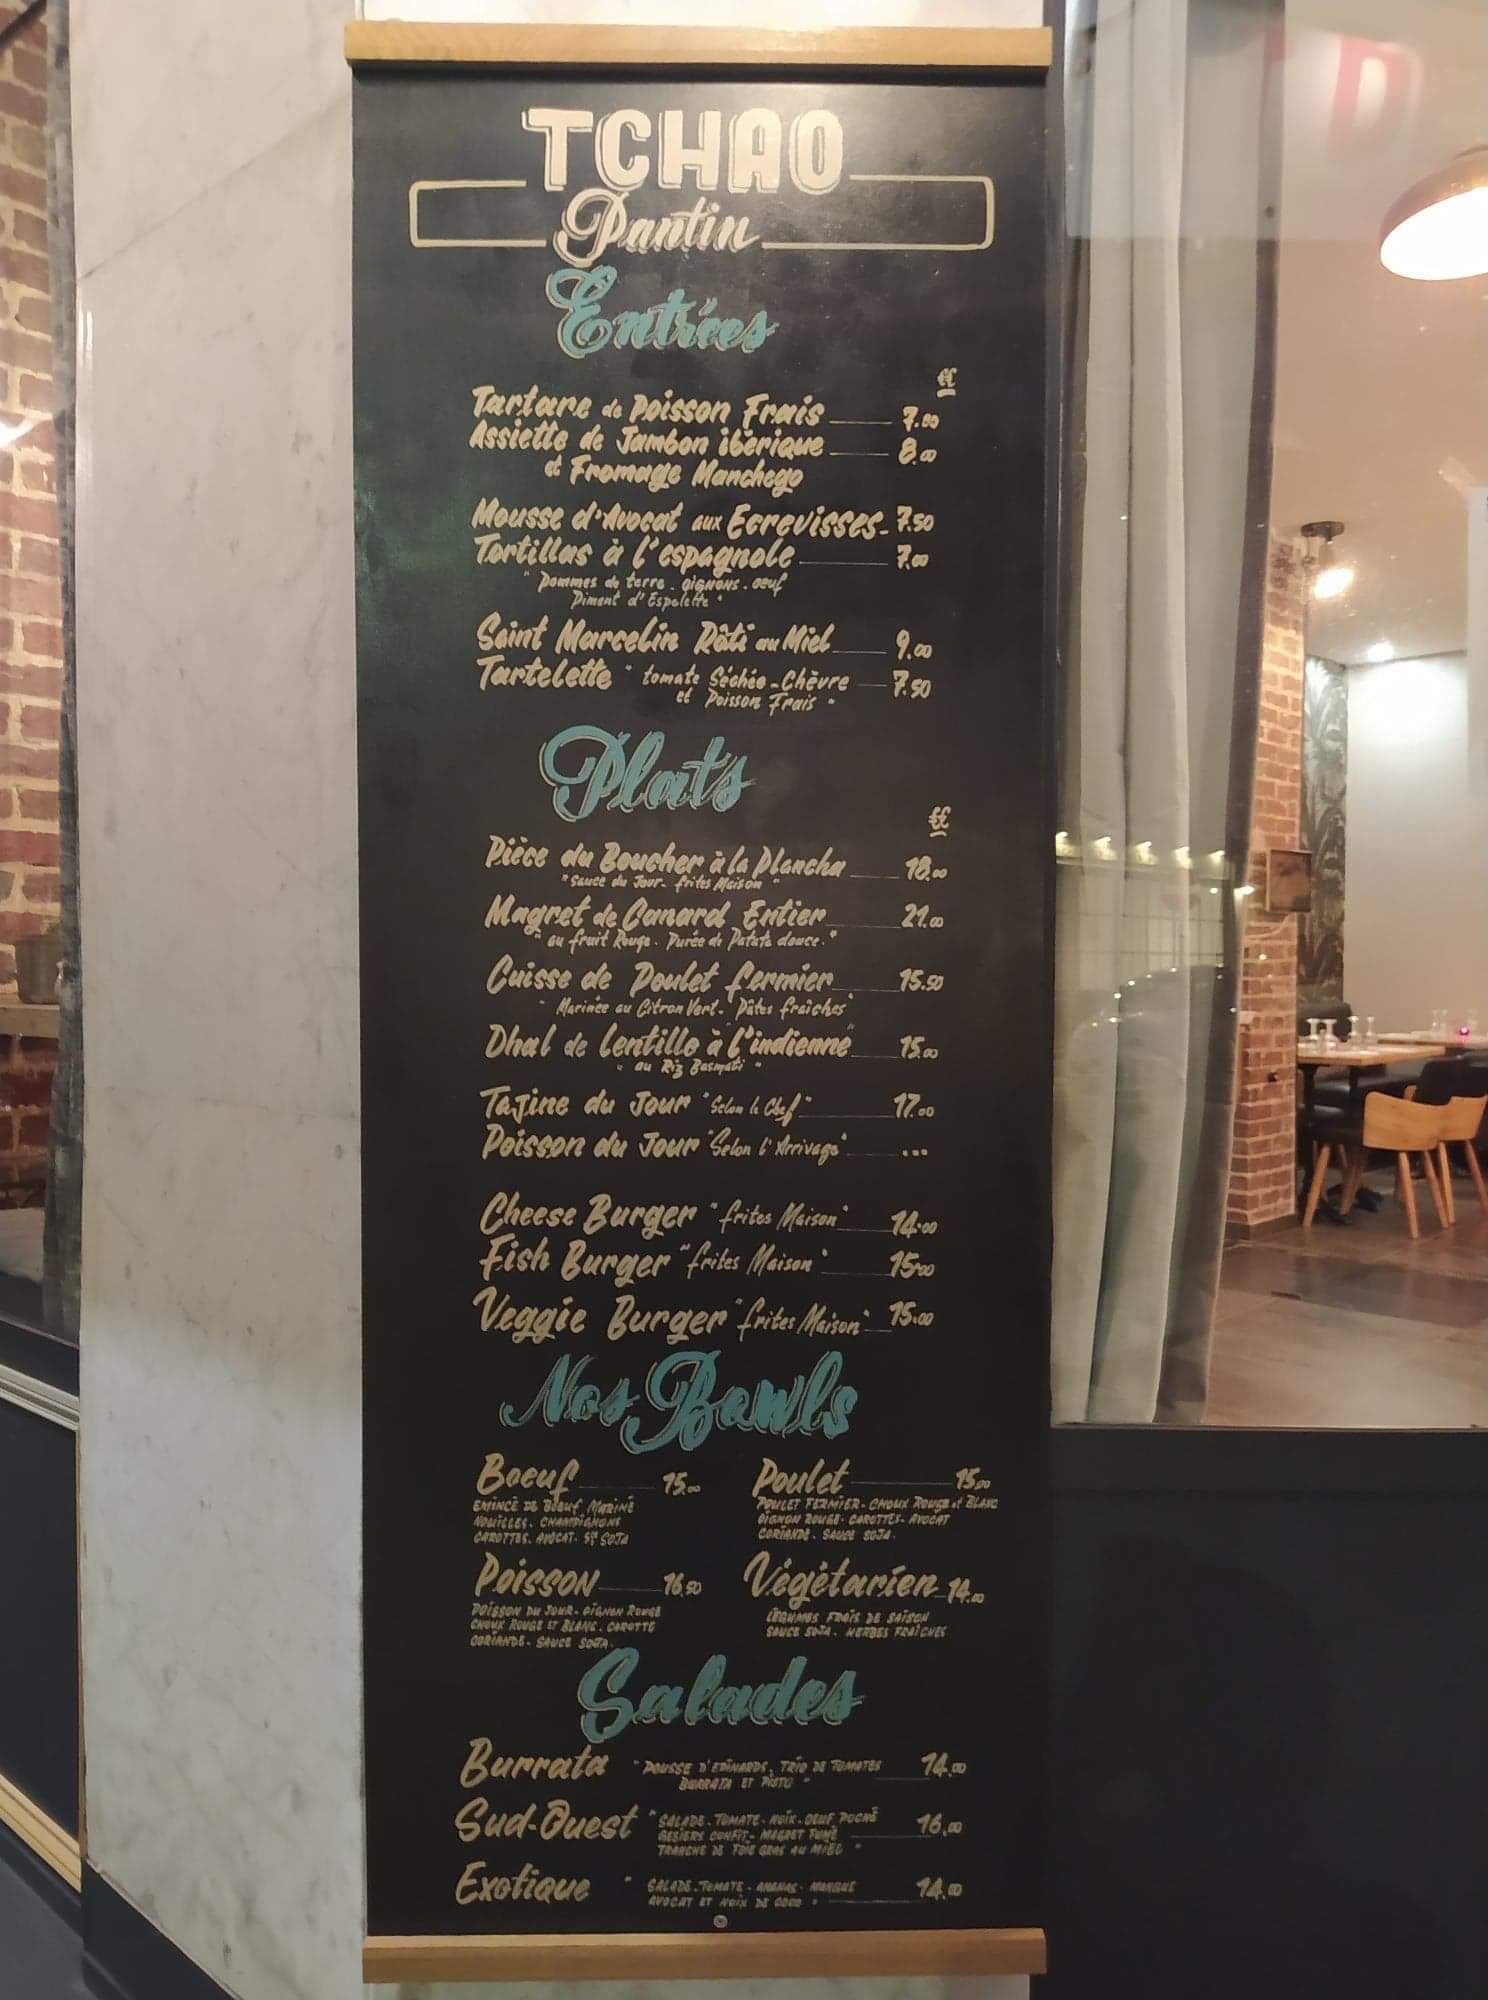 TCHAO
Pantin
Entrées
€€
Tartare de Poisson Frais 7.00
Assiette de Jambon ibérique 8.00
et Fromage Manchego
Mousse d'Avocat aux Ecrevisses 7.50
Tortillas à l'espagnole 7.00
"Pommes de terre. oignons. oeuf
Piment d'Espelette"
Saint Marcelin Rôti au Miel 9.00
Tartelette "tomate Séchée - Chèvre 7.50
et Poisson Frais"
Plats
€€
Pièce du Boucher à la Plancha 18.00
"Sauce du Jour. frites Maison"
Magret de Canard Entier 21.00
"au fruit Rouge. Purée de Patate douce."
Cuisse de Poulet fermier 15.50
"Marinée au Citron Vert. Pâtes fraîches"
Dhal de lentille à "l'indienne" 15.00
"au Riz Basmati"
Tajine du Jour "Selon le Chef" 17.00
Poisson du Jour "Selon l'Arrivage" ...
Cheese Burger "frites Maison" 14.00
Fish Burger "frites Maison" 15.00
Veggie Burger "frites Maison" 15.00
Nos Bowls
Boeuf 15.00
EMINCÉ DE BOEUF MARINÉ
NOUILLES. CHAMPIGNONS
CAROTTES. AVOCAT. SCE SOJA
Poulet 15.00
POULET FERMIER. CHOUX ROUGE et BLANC
OIGNON ROUGE. CAROTTES. AVOCAT
CORIANDE. SAUCE SOJA.
Poisson 16.50
POISSON DU JOUR. OIGNON ROUGE
CHOUX ROUGE ET BLANC. CAROTTE
CORIANDE. SAUCE SOJA.
Végétarien 14.00
LÉGUMES FRAIS DE SAISON
SAUCE SOJA. HERBES FRAÎCHES
Salades
Burrata "POUSSE D'EPINARDS, TRIO DE TOMATES 14.00
BURRATA ET PISTO"
Sud-Ouest "SALADE. TOMATE. NOIX. OEUF POCHÉ 16.00
GESIERS CONFIT. MAGRET FUMÉ
TRANCHE DE FOIE GRAS AU MIEL"
Exotique "SALADE. TOMATE. ANANAS. MANGUE 14.00
AVOCAT ET NOIX DE COCO"